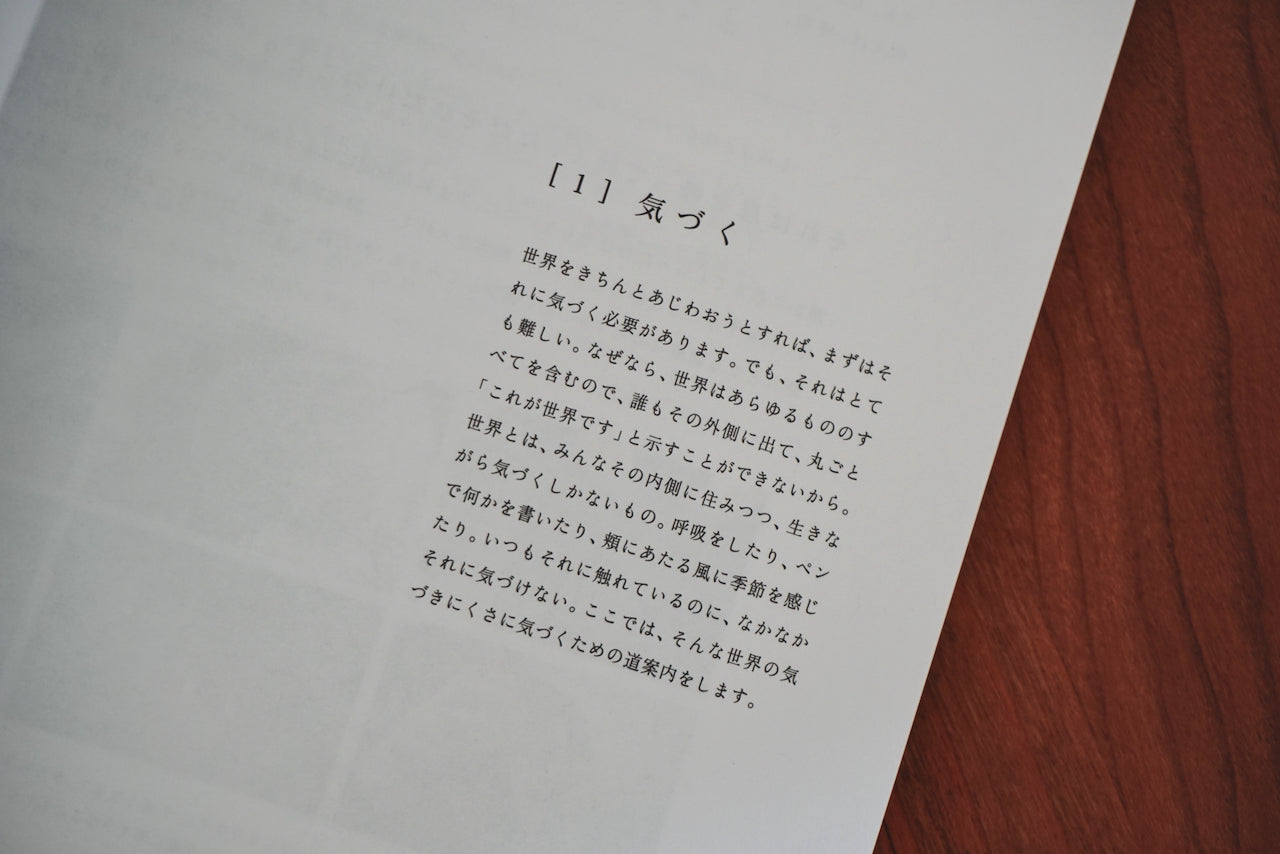 [1] 気づく
世界をきちんとあじわおうとすれば、まずはそ
れに気づく必要があります。でも、それはとて
も難しい。なぜなら、世界はあらゆるもののす
べてを含むので、誰もその外側に出て、丸ごと
「これが世界です」と示すことができないから。
世界とは、みんなその内側に住みつつ、生きな
がら気づくしかないもの。呼吸をしたり、ペン
で何かを書いたり、頬にあたる風に季節を感じ
たり。いつもそれに触れているのに、なかなか
それに気づけない。ここでは、そんな世界の気
づきにくさに気づくための道案内をします。